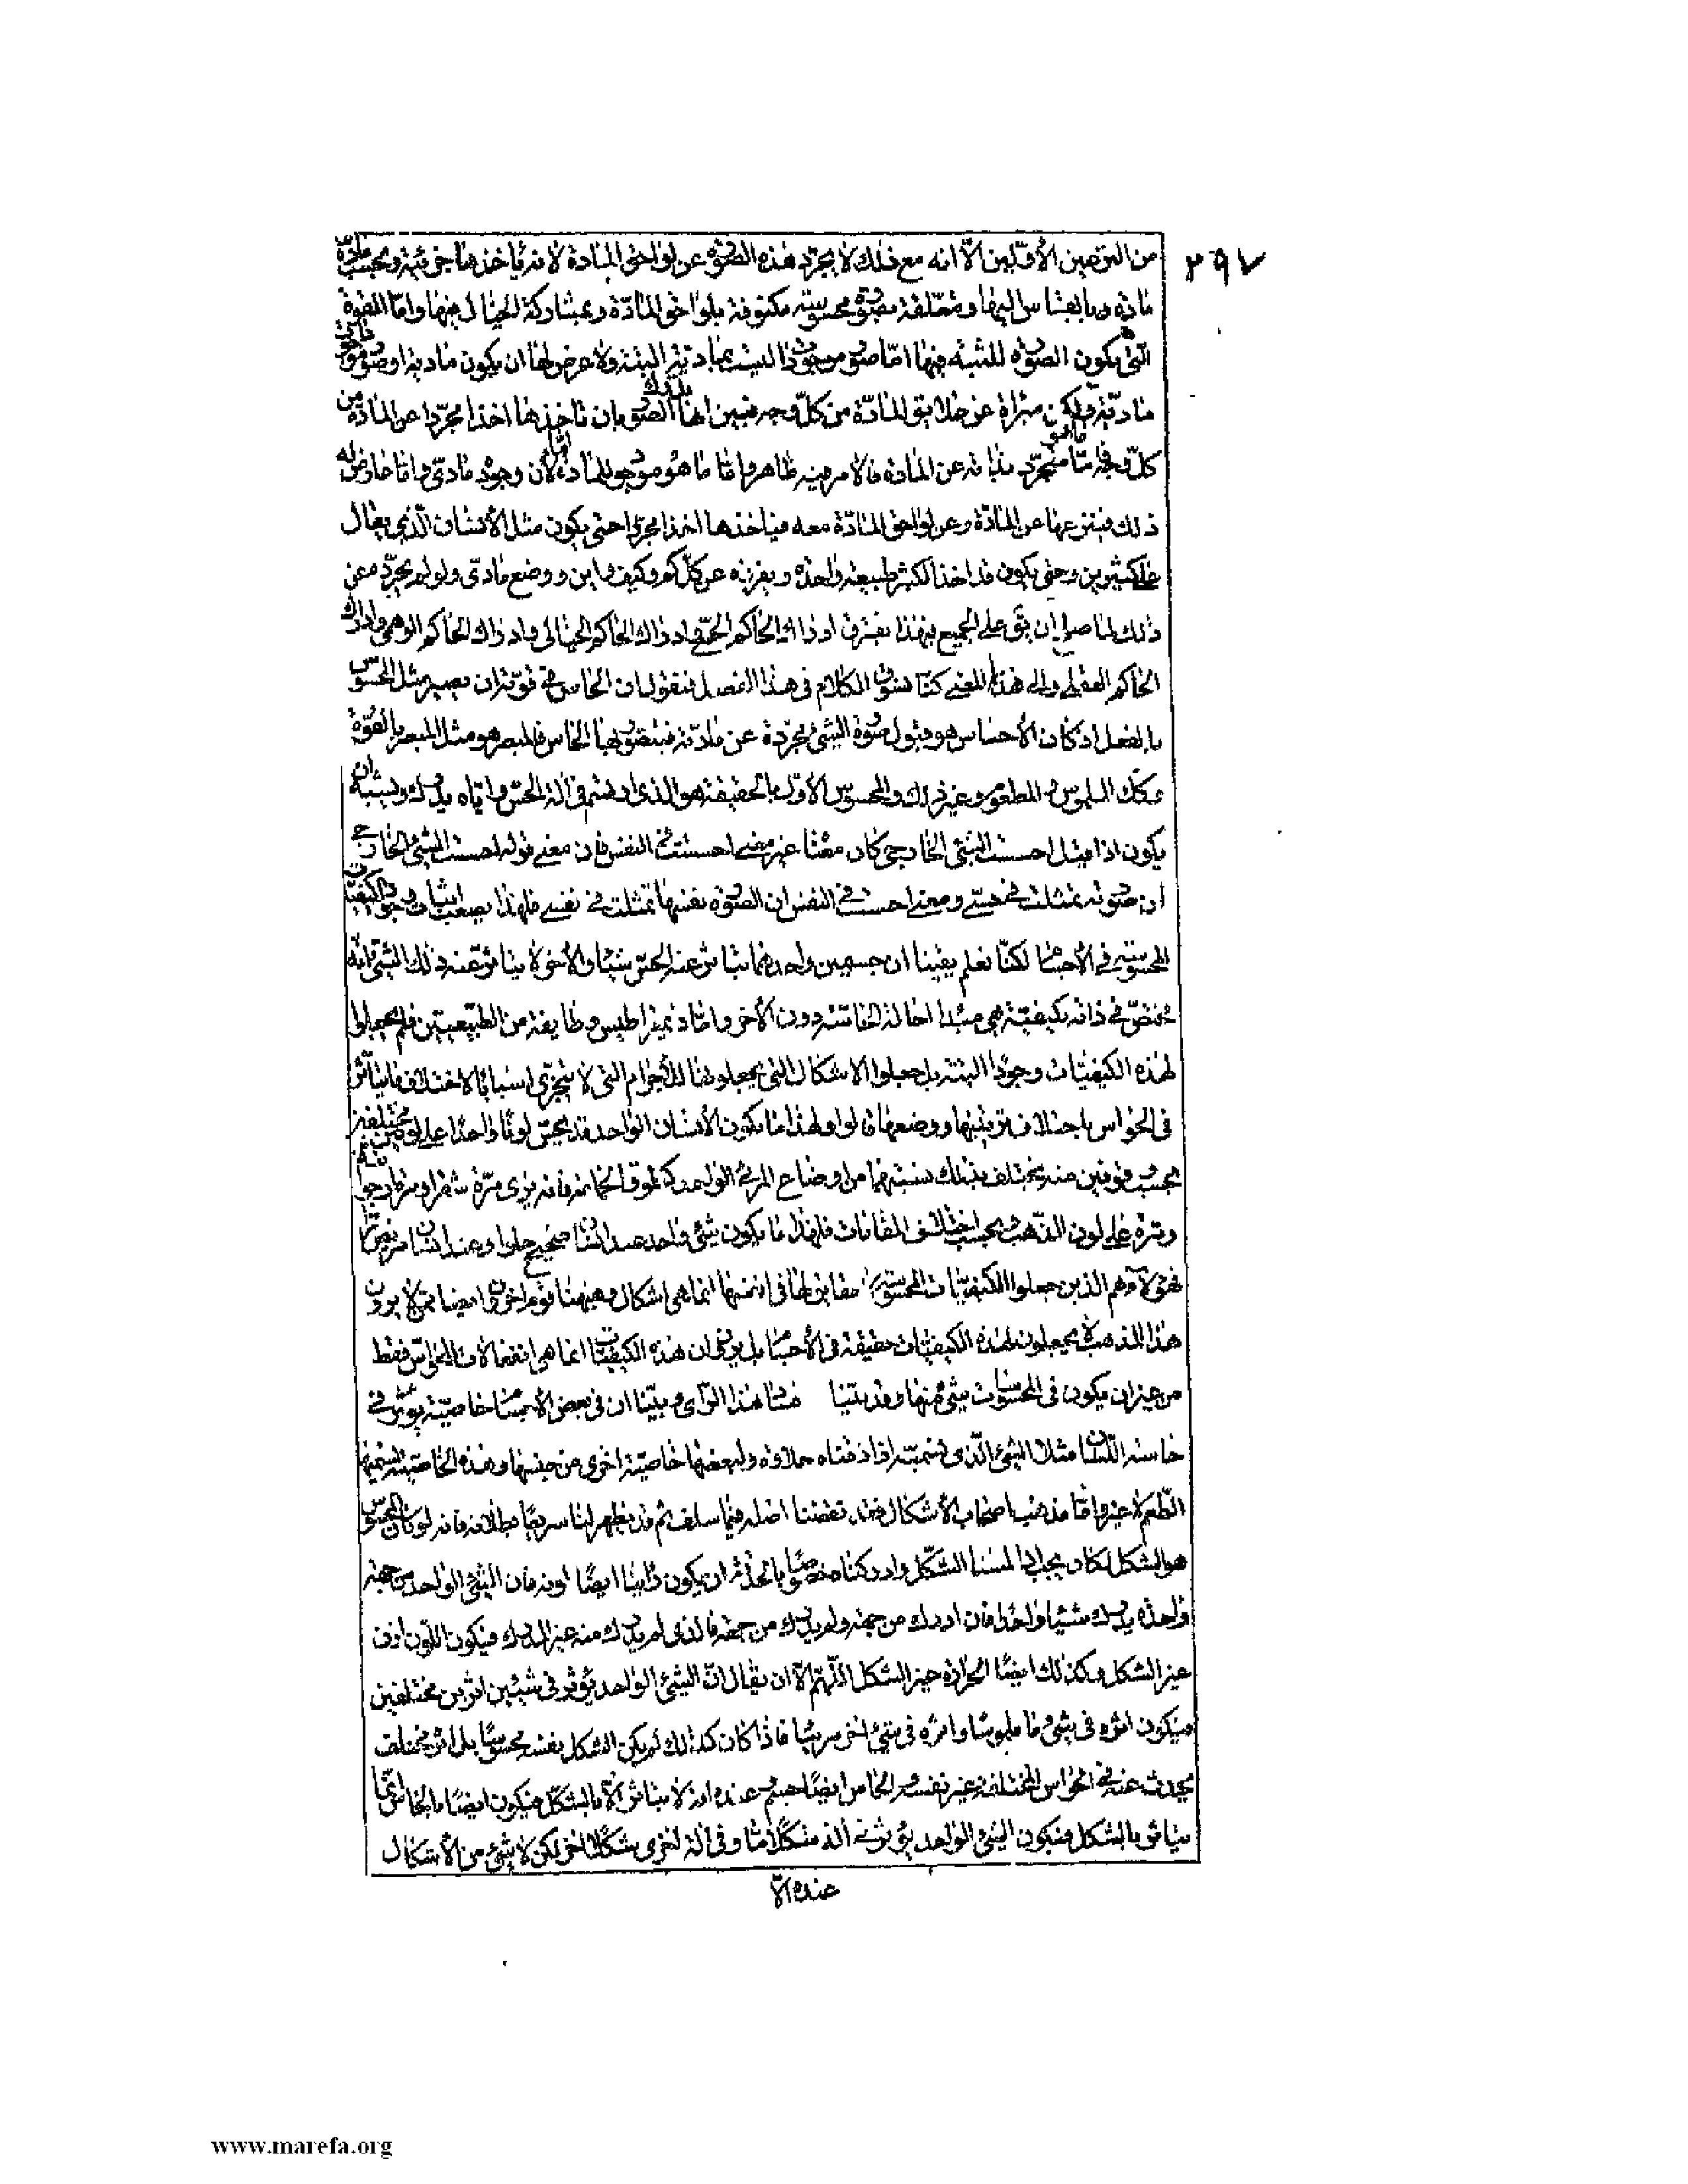 ٢٩٧
من النزعين الأوّلين الّا انه مع ذلك لا يجرّد هذه الصّورة عن لواحق المادة لانه يأخذها جزئية وبحسب مادة
مادة وبالقياس اليها ومتعلّقة بصورة محسوسة مكنوفة بلواحق المادّة وبمشاركة الخيال فيها وامّا القوة
التى يكون الصّورة المثبتة فيها امّا صور موجودات ليست بمادية البتة ولا عرض لها ان يكون مادية او صور موجودات
ماديّة ولكن مبرّاة عن علايق المادّة من كلّ وجه فبين انها تدرك الصّور بان تأخذها اخذا مجرّدا عن المادّة من
كلّ وجه امّا ما هو متجرّد بذاته عن المادة فالامر فيه ظاهر وامّا ما هو موجود للمادة امّا لأن وجوده مادىّ وامّا عارض له
ذلك فبنزعها عن المادّة وعن لواحق المادّة معه فيأخذها اخذا مجرّدا حتى يكون مثل الأنسان الّذى يقال
على كثيرين وحتى يكون قد اخذ الكثير طبيعة واحدة ويفرزه عن كلّ كم وكيف واين ووضع مادىّ ولو لم يجرّده عن
ذلك لما صلح ان يق على الجميع فبهذا يفترق ادراك الحاكم الحسّى وادراك الحاكم الخيالى وادراك الحاكم الوهمى وادراك
الحاكم العقلى والى هذا المعنى كنّا نسوق الكلام فى هذا الفصل فنقول ان الحاس فى قوّته ان يصير مثل المحسوس
بالفعل اذ كان الأحساس هو قبول صورة الشئ مجرّدة عن مادّته فيتصور بها الحاس فالمبصر هو مثل المبصر بالقوّة
وكك الملموس والمطعوم وغير ذلك والمحسوس الأوّل بالحقيقة هو الذى ارتسم فى آلة الحسّ وايّاه يدرك ويشبه ان
يكون اذا قيل احسست الشئ الخارجى كان معناه غير معنى احسست فى النفس فان معنى قوله احسست الشئ الخارجى
ان صورته تمثلت فى حسّى ومعنى احسست فى النفس ان الصّورة نفسها تمثلت فى نفسى فلهذا يصعب اثبات وجود الكيفيّات
المحسوسة فى الأجسام لكنّا نعلم يقينا ان جسمين واحدهما يتأثر عنه الحسّ شيئا والأخر لا يتأثر عنه ذلك الشئ انه
مختصّ فى ذاته بكيفيّة هى مبدأ احالة الحاسّة دون الأخر وامّا ذيمقراطيس وطايفة من الطّبيعيّين فلم يجعلوا
لهذه الكيفيّات وجودًا البتة بل جعلوا الاشكال التى يجعلونها للأجرام التى لا تتجزّى اسبابا لاختلاف ما يتأثر
فى الحواس باختلاف ترتيبها ووضعها قالوا ولهذا ما يكون الأنسان الواحد قد يحسّ لونًا واحدًا على لونين مختلفين
بحسب وقوفين منه يختلف بذلك نسبتهما من اوضاع المرئى الواحد كطوق الحمامة فانه يرى مرّة اشقر ومرّة ارجوانيّا
ومرّة على لون الذّهب وبحسب اختلاف المقامات فلهذا ما يكون شئ واحد عند انسان صحيح حلوا وعند انسان مريض مرّا
فهؤلاء هم الذين جعلوا الكيفيّات المحسوسة لا حقايق لها فى انفسها انما هى اشكال وهيهنا قوم اخرون ايضا ممّن لا يرون
هذا المذهب لا يجعلون لهذه الكيفيّات حقيقة فى الأجسام بل يرون ان هذه الكيفيّات انما هى انفعالات للحواسّ فقط
من غير ان يكون فى المحسوسات شئ منها وقد بيّنا فساد هذا الرّأى وبيّنا ان فى بعض الأجسام خاصيّة يؤثر فى
حاسة اللّسان مثلا الشئ الّذى نسمّيه اذا ذقناه حلاوة ولبعضها خاصيّة اخرى من جنسها وهذه الخاصيّة نسمّيها
الطّعم لا غير وامّا مذهب اصحاب الأشكال فقد نقضنا اصله فيما سلف ثم قد يظهر لنا سريعًا بطلانه فانه لو كان المحسوس
هو الشكل لكان يجب اذا لمسنا الشكل وادركناه خصوصًا بالحدقة ان يكون رأينا ايضًا لونه فان الشئ الواحد من جهة
واحدة يدرك شيئا واحدا فان ادرك من جهة ولم يدرك من جهة فالذى لم يدرك منه غير المدرك فيكون اللّون اذن
غير الشكل وكذلك ايضًا الحرارة غير الشكل اللّهم الّا ان يقال انّ الشئ الواحد يؤثر فى شيئين اثرين مختلفين
فيكون اثره فى شئ ما ملموسًا واثره فى شئ اخر مرئيّا فاذا كان كذلك لم يكن الشكل نفسه محسوسًا بل اثر مختلف
يحدث عنه فى الحواس المختلفة غير نفسه والحاس ايضًا جسم وعنده انه لا يتأثر الّا بالشكل فيكون ايضًا الحاس انّما
يتأثر بالشكل فيكون الشئ الواحد يؤثر فى آلة شكلًا ما وفى آلة اخرى شكلًا اخر لكن لا شئ من الأشكال
عنده الّا
www.marefa.org